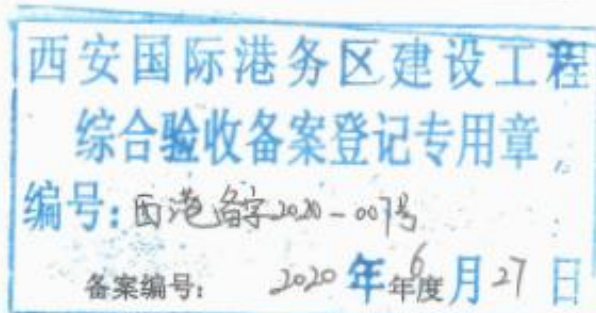 西安国际港务区建设工程
综合验收备案登记专用章
编号：西港备字2020-007号
备案编号： 2020年6年度月27日